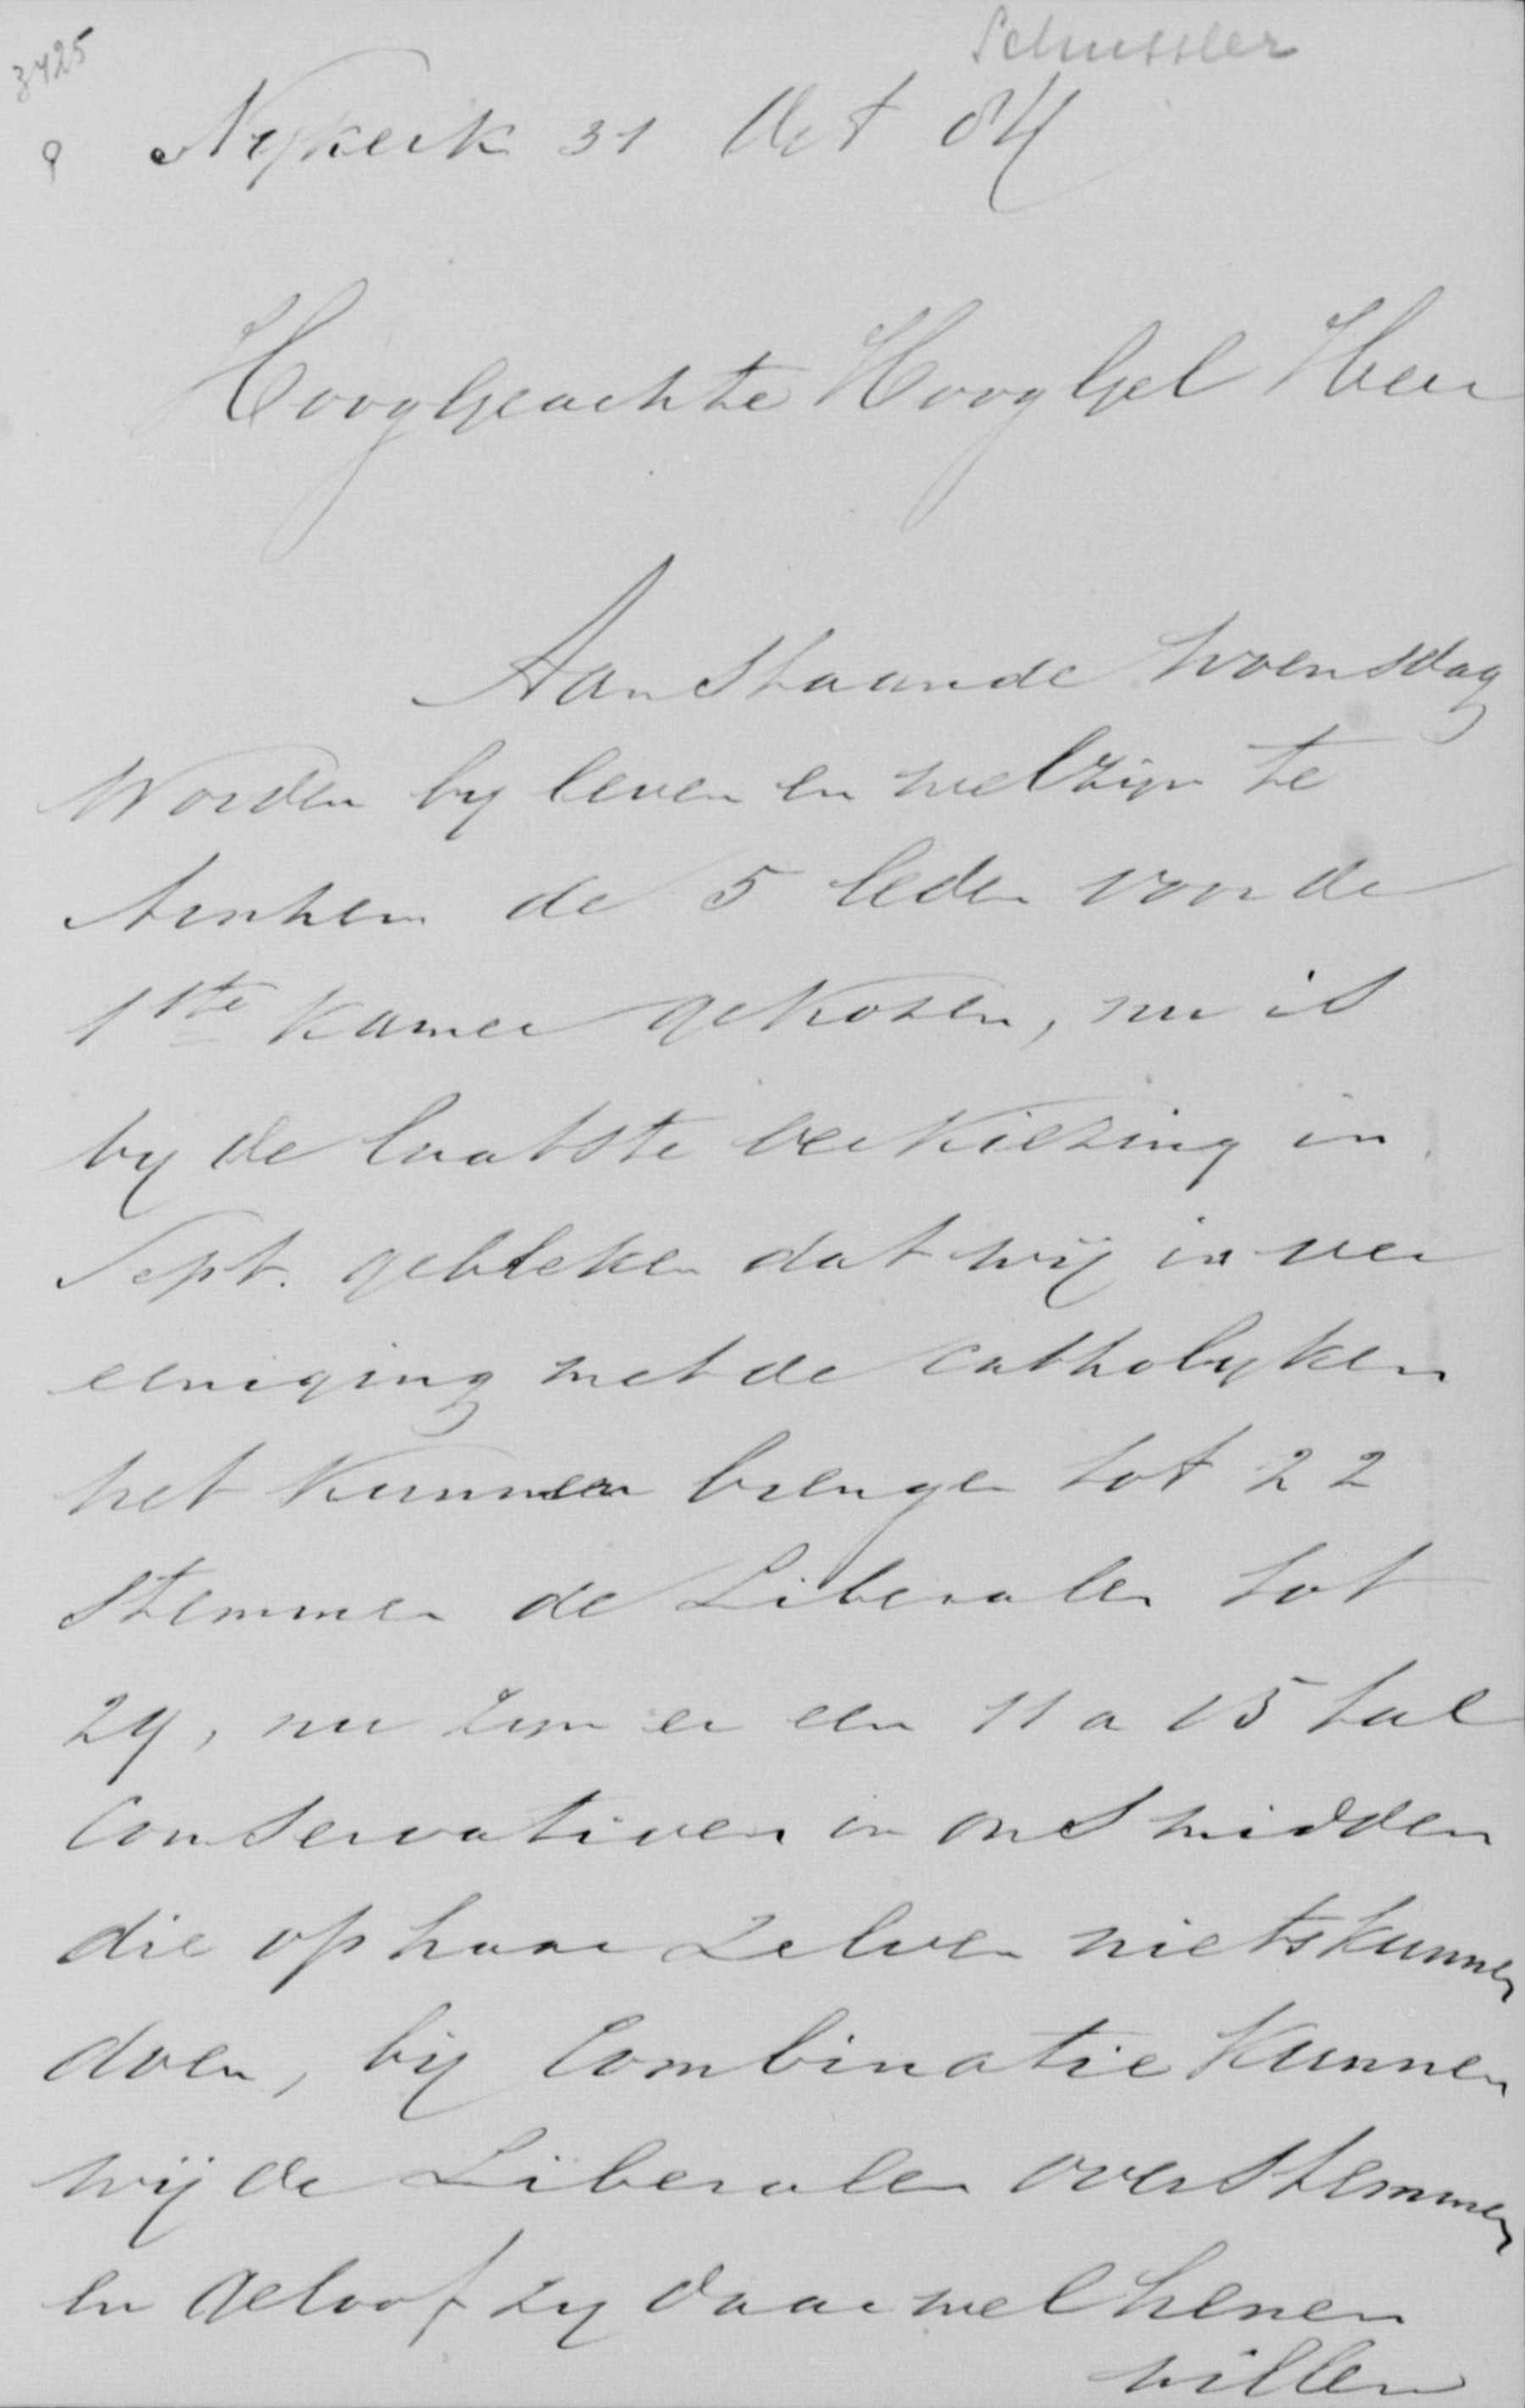 Schussler
3425
Nykerk 31 Oct 84
HoogGeachte HoogGel Heer
Aanstaande Woensdag
Worden by leven en welzijn te
Arnhem de 5 leden voor de
1ste Kamer gekozen, nu is
by de laatste verkiezing in
Sept. gebleken dat wij in ver
eeniging met de catholyken
het kunnen brengen tot 22
stemmen de Liberalen tot
29, nu zijn er een 11 a 15 tal
Conservativen in ons midden
die op haar zelven niets kunnen
doen, bij Combinatie kunnen
wij de Liberalen overstemmen
en geloof zy daar wel henen
willen